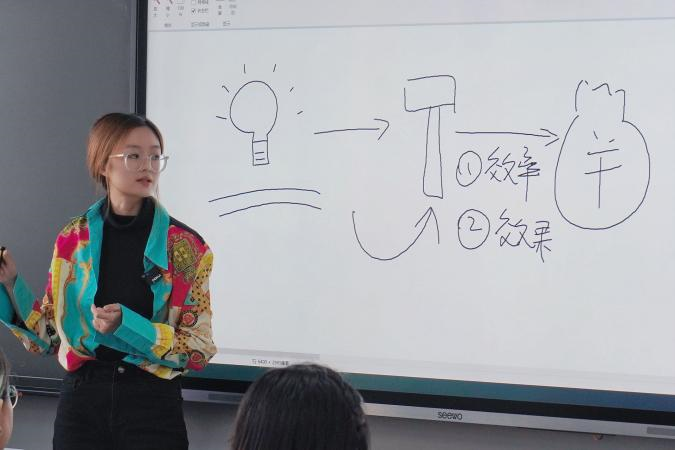 ① 效率
② 效果
¥
seewo